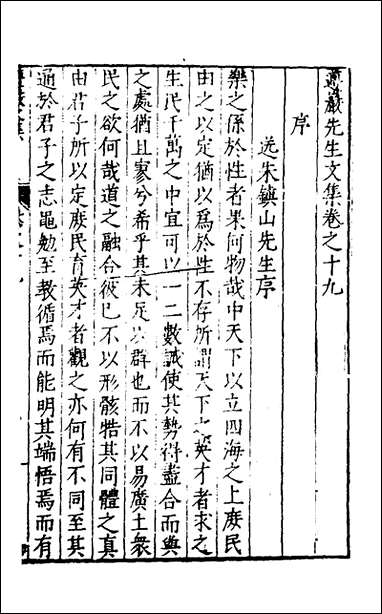 遵巖先生文集卷之十九
序
送朱鎮山先生序
樂之係於性者果何物哉中天下以立四海之上庶民
由之以定猶以爲於性不存所謂天下之英才者求之
生民千萬之中宜可以一二數誠使其勢得盡合而與
之處猶且寡兮希乎其未足以群也而不以易廣土衆
民之欲何哉道之融合彼已不以形骸牿其同體之真
由君子所以定庶民育英才者觀之亦何有不同至其
通於君子之志黽勉至教循焉而能明其端悟焉而有